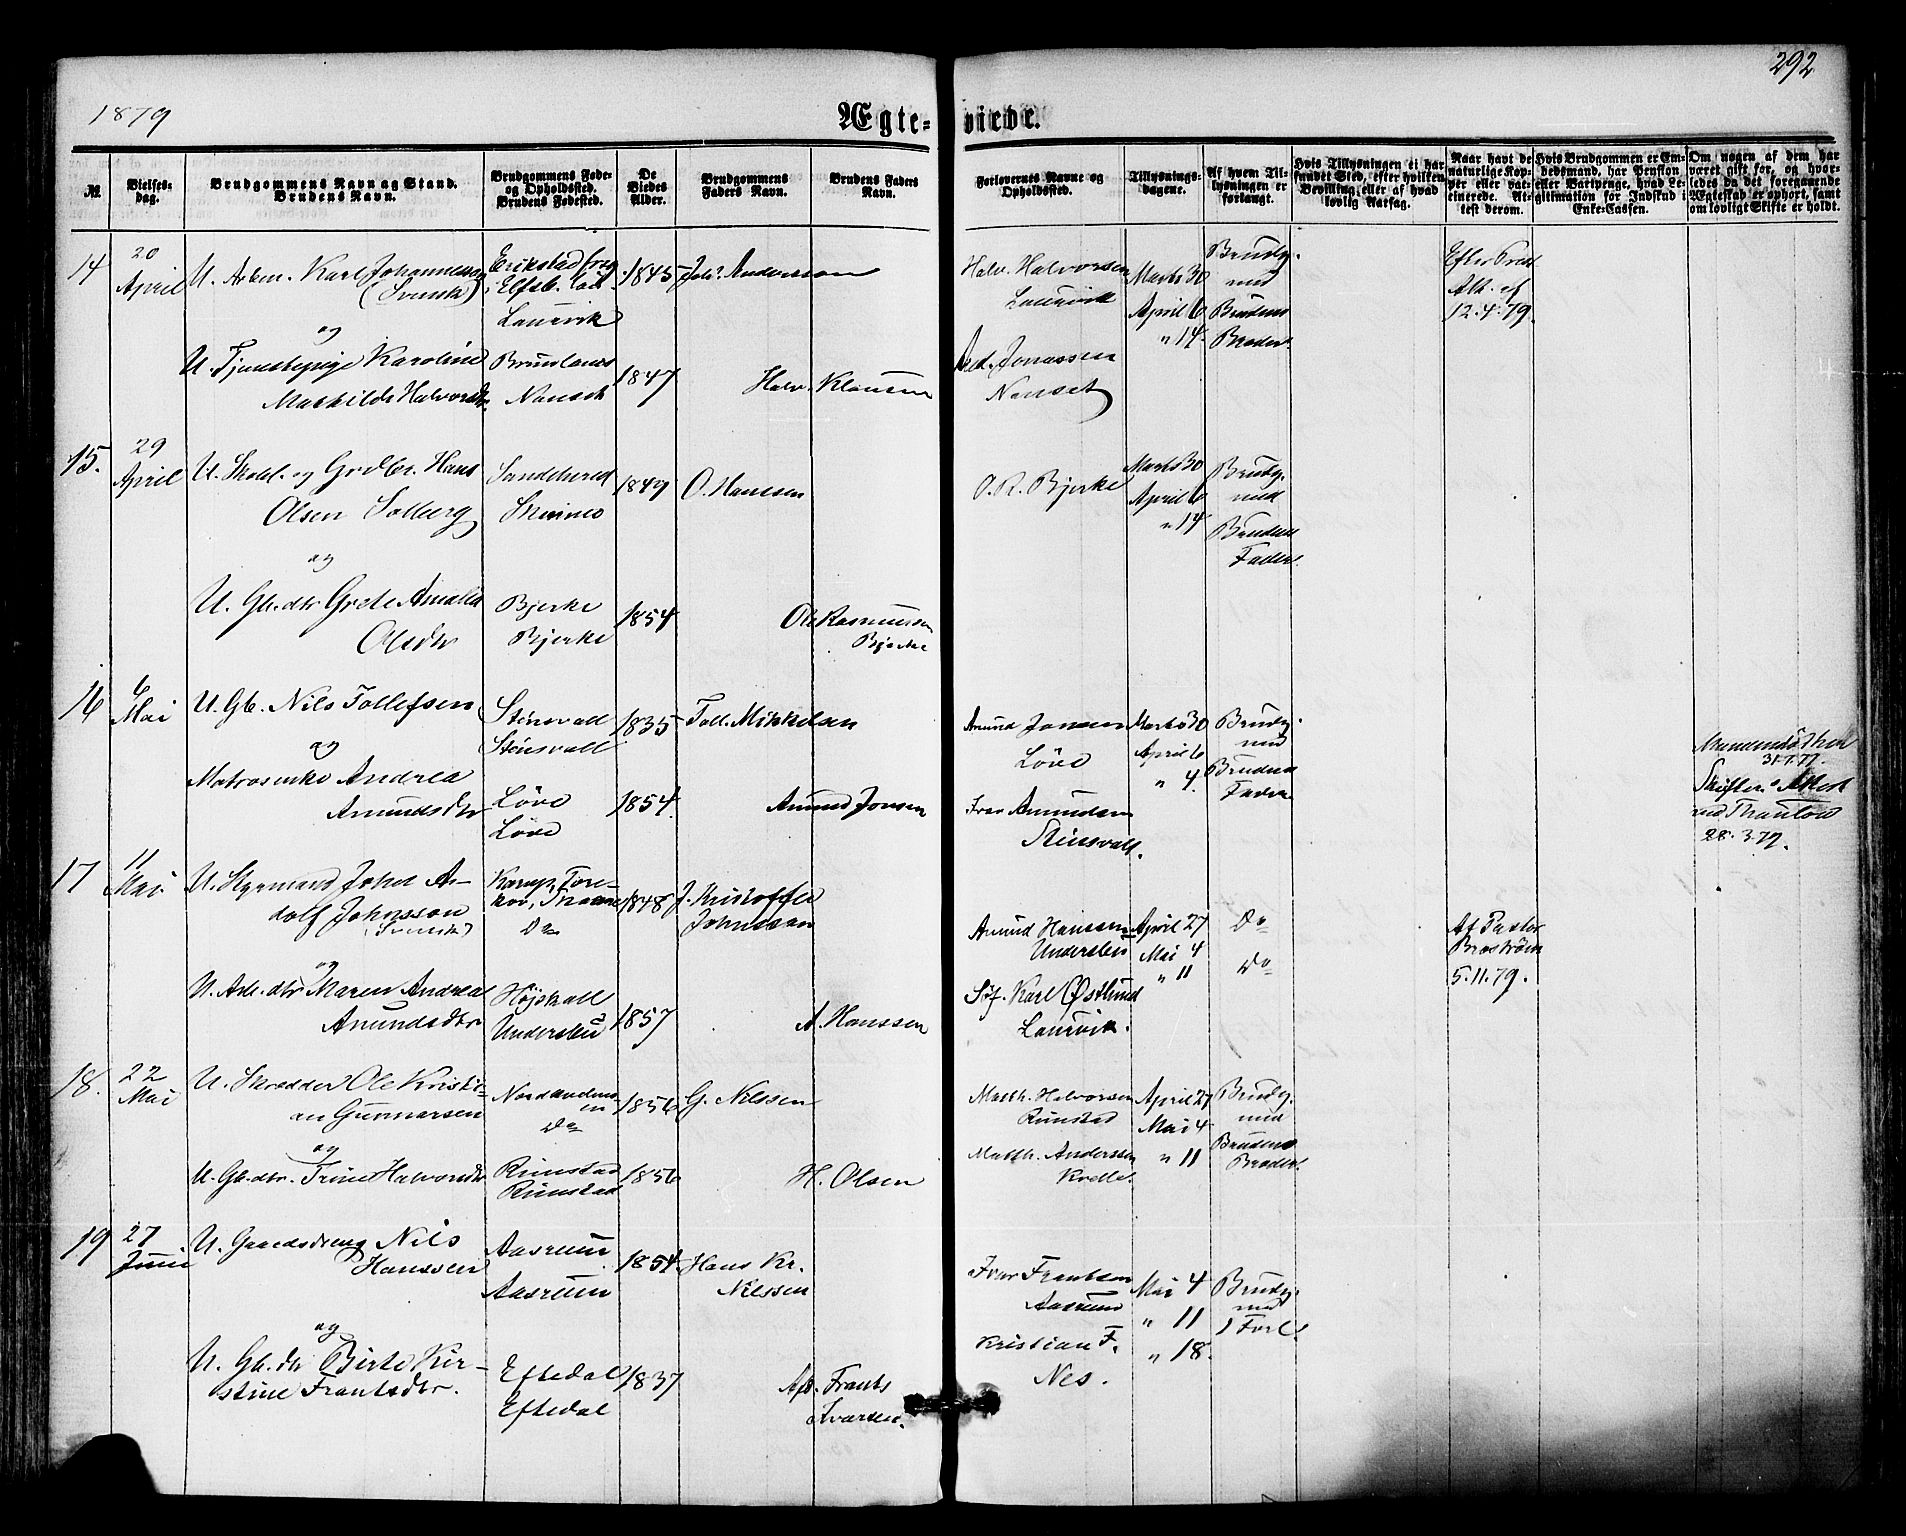 292
1879
Ægte-viede.
№.
Vielses-
dag.
Brudgommens Navn og Stand.
Brudens Navn.
Brudgommens Føde-
og Opholdssted.
Brudens Fødested.
De
Viedes
Alder.
Brudgommens
Faders Navn.
Brudens Faders
Navn.
Forlovernes Navne og
Opholdssted.
Tillysnings-
dagene.
Af hvem Til-
lysningen er
forlangt.
Hvis Tillysningen ei har
fundet Sted, efter hvilken
Bevilling eller af hvad
lovlig Aarsag.
Naar havt de
naturlige Kop-
per eller vac-
cinerede. At-
test derom.
Hvis Brudgommen er Em-
bedsmand, har Pension
eller Vartpenge, hvad Le-
gitimation for Indskud i
Enke-Cassen.
Om nogen af dem har
været gift før, og hvor-
ledes da det foregaaende
Ægteskab er ophørt, samt
om lovligt Skifte er holdt.
14
20
April
U. Arbm. Karl Johannesson
(Svensk)
og
U. Tjenestepige Karoline
Mathilde Halvorsdtr.
Erikstad
Elfsb. Län
Laurvik
Brunlanes
Nanset
1845
1847
Johs. Andersson
Halv. Klausen
Halv. Halvorsen
Laurvik
Jonassen
Nanset
Marts 30
April 6
" 14.
Brudg.
med
Brudens
Broder.
Efter
Att. af
12.4.79.
15.
29
April
U. Skoel. og Grdbr. Hans
Olsen Solberg
og
U. Gb.dtr Grete Amalia
Olsdtr
Sandeherred
Bjerke
Bjerke
1849
1854
O. Hansen
Ole Rasmussen
Bjerke
O. R. Bjerke
Marts 30
April 6
" 14
Brudg.
med
Brudens
Fader.
16
6
Mai
U. Gb. Nils Tollefsen
og
Matrosenke Andrea
Amundsdtr
Stensvall
Stensvall
Løve
Løve
1835
1854.
Toll. Mikkelsen
Amund Jonsen
Amund Jonsen
Løve
Iver Amundsen
Stensvall.
Marts 30
April 6
" 4.
Brudg.
med
Brudens
Fader
31.1.77.
Skifte
med Thaulow
28.3.79.
17
11
Mai
U. Styrmand Johan A-
dolf Johnsson
(Svensk)
og
U. Arb.dtr Maren Andrea
Amundsdtr
Karup, Tore-
kov,
Do
Højskall
Undersbo
1848
1857
J. Kristoffer
Johnsson
A. Hanssen
Amund Hanssen
Undersbo
Søf. Karl Østlund
Laurvik.
April 27
Mai 4
" 11
Do
Do
Af Pastor
Broström
5.11.79.
18.
22
Mai
U. Skrædder Ole Kristi-
an Gunnarsen
og
U. Gb.dtr. Trine Halvorsdtr
Do
Rimstad
Rimstad
1856
1856
G. Nilssen
H. Olsen
Math. Halvorsen
Rimstad
Math. Anderssen
Kvelle.
April 27
Mai 4
" 11
Brudg.
med
Brudens
Broder.
19
27
Juni
U. Gaardsdreng Nils
Hanssen
og
U. Gb.dtr Birte Kir-
stine Frantsdtr.
Aasrum
Aasrum
Eftedal
Eftedal
1854.
1837
Hans Kr.
Nilssen
Afd. Frants
Ivarsen.
Ivar Frantsen
Aasrum
Kristian F.
Nes.
Mai 4
" 11
" 18.
Brudg.
med
1 Forl.